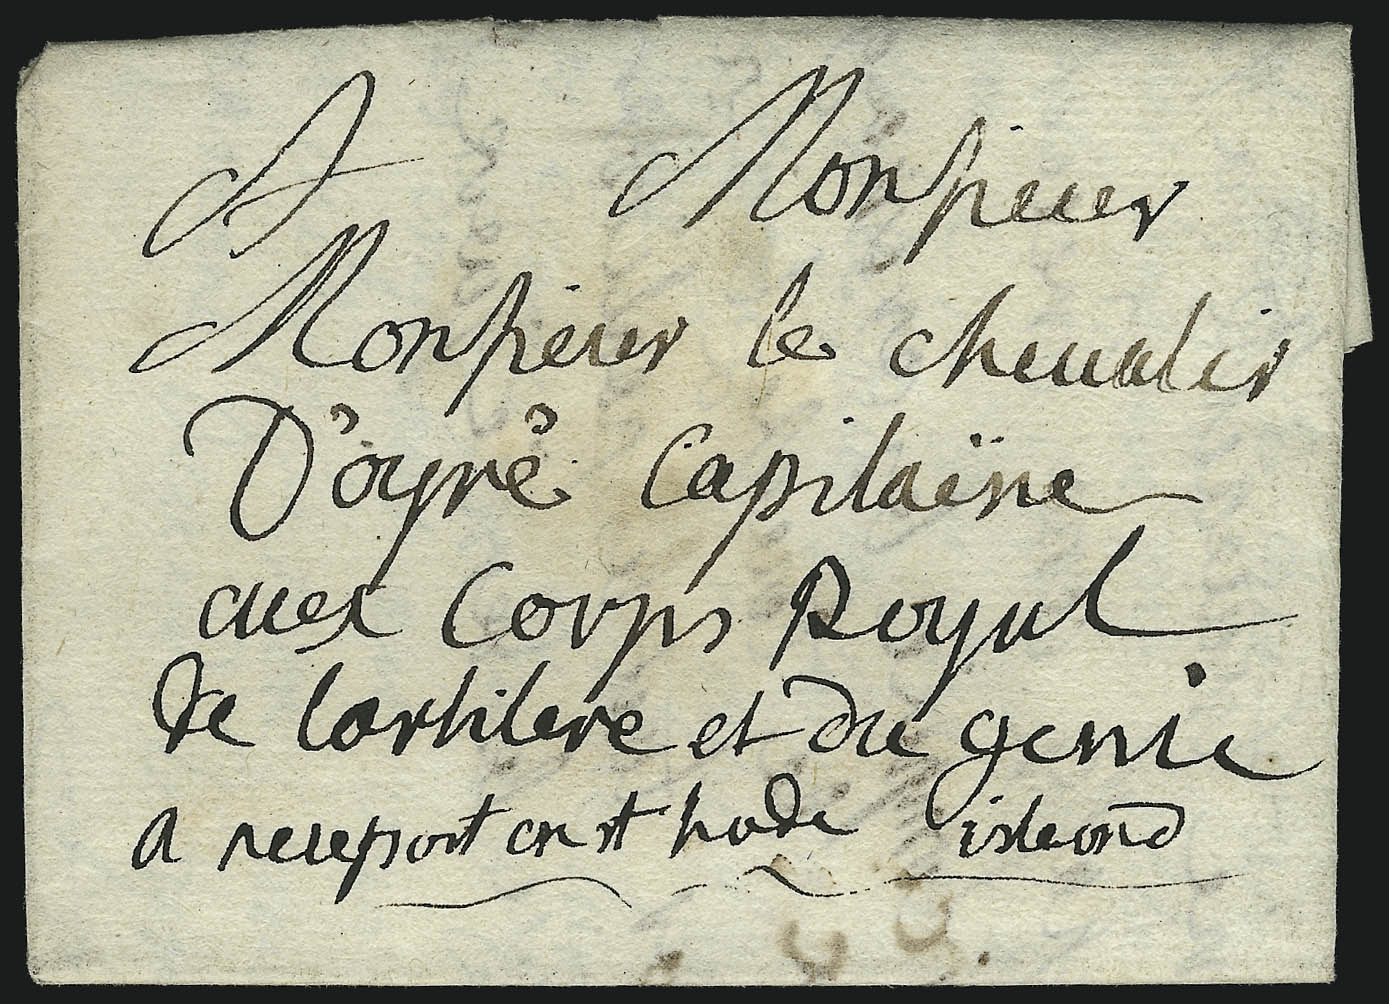 A Monsieur
Monsieur le chevalir
D'oyré Capitaine
aux Corps Royal
de lartilere et du genie
a neuport en st hode isleond